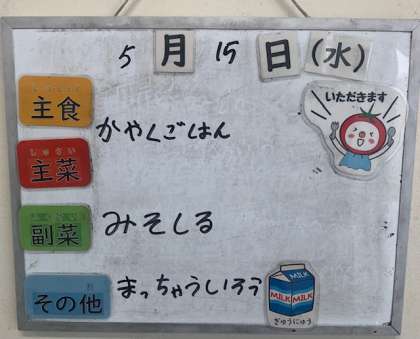 5月15日(水)
いただきます
主食
かやくごはん
しゅさい
主菜
副菜
みそしる
その他
まっちゃういろう
MILK
MILK MILK
ぎゅうにゅう